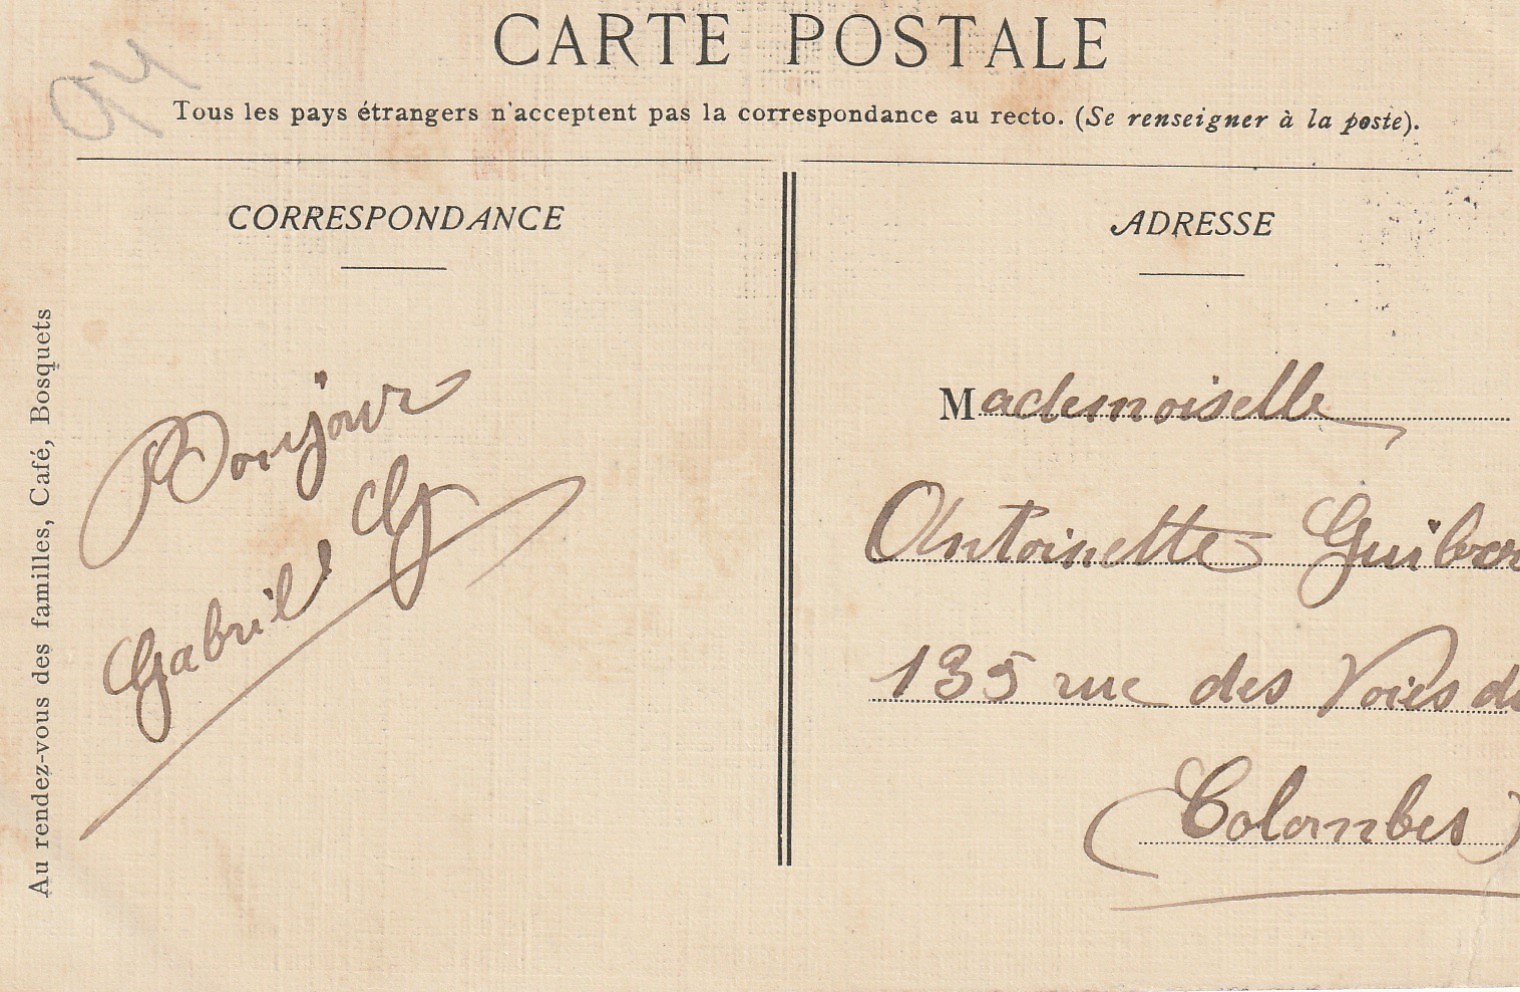 94
CARTE POSTALE
Tous les pays étrangers n'acceptent pas la correspondance au recto. (Se renseigner à la poste).
CORRESPONDANCE
Bonjour
Gabriel G
Au rendez-vous des familles, Café, Bosquets
ADRESSE
Mademoiselle
Antoinette
135 rue des Voies
(Colombes)